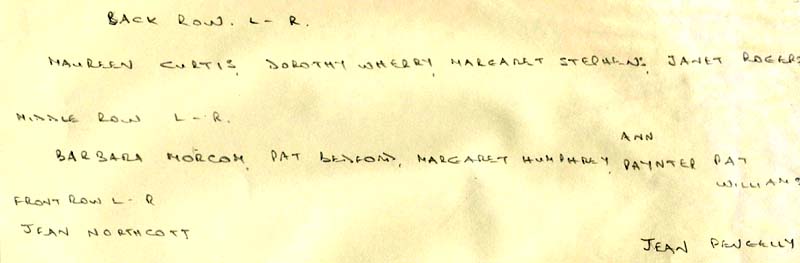 BACK ROW. L - R.
MAUREEN CURTIS, DOROTHY WHERRY, MARGARET STEPHENS, JANET ROGERS
MIDDLE ROW L - R.
ANN
BARBARA MORCOM, PAT BEDFORD, MARGARET HUMPHREY, PAYNTER PAT
WILLIAMS
FRONT ROW L - R
JEAN NORTHCOTT
JEAN PENGELLY